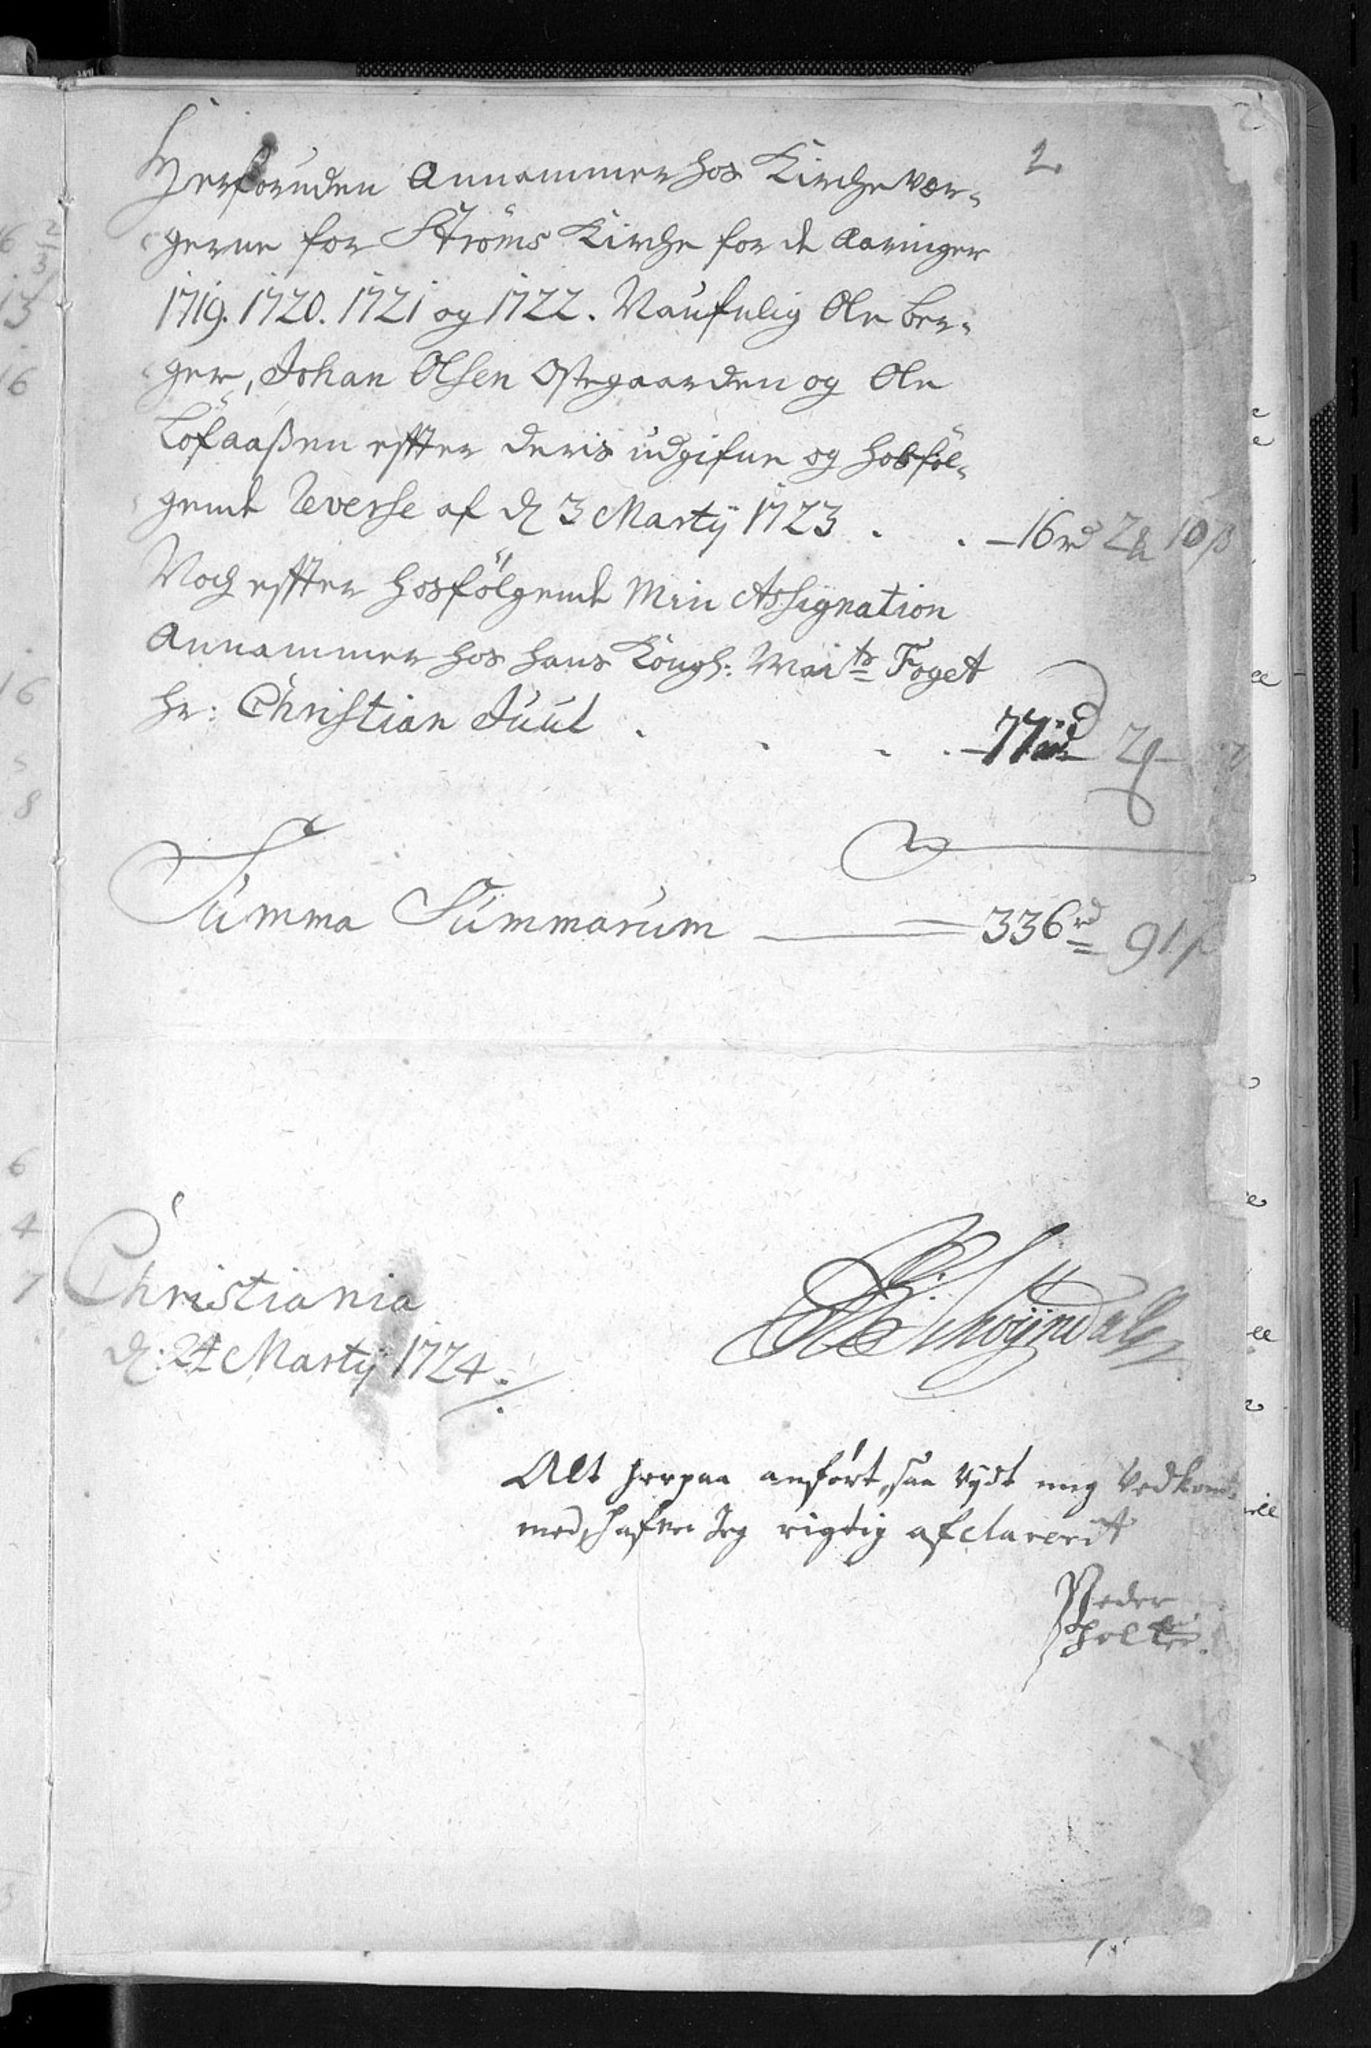 2
Herforuden Annammer hos Kirche vær-
gerne for Ströms Kirche for de Aaringer
1719. 1720. 1721 og 1722. Naufnlig Ole Ber-
ger, Johan Olsen Ostegaarden og Ole
Löfaaßen effter deris udgifne og hosföl-
gende Reverse af d 3 Martÿ 1723 . . 16 rd 2 10 ß
Noch effter hosfölgende Min Assignation
Annammer hos hans Kongl: Maits Foget
hr: Christian Juul . . . . 77 rd
Summa Summarum 336 rd 91 ß
Christiania
d: 24 Martÿ 1724.
Alt herpaa anfört, saa vydt mig Vedkom-
med, hafver Jeg rigtig afclarerit
Peder
Holter.